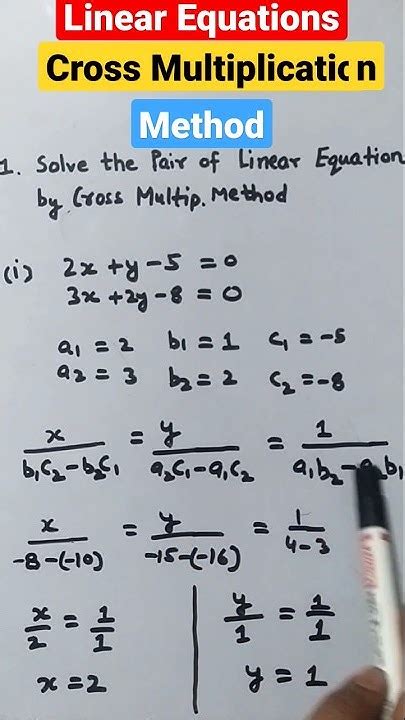 Linear Equations
Cross Multiplication
Method
1. Solve the Pair of Linear Equation
by Cross Multip. Method
(i) 2x + y - 5 = 0
3x + 2y - 8 = 0
a₁ = 2 b₁ = 1 c₁ = -5
a₂ = 3 b₂ = 2 c₂ = -8
x/(b₁c₂ - b₂c₁) = y/(a₂c₁ - a₁c₂) = 1/(a₁b₂ - a₂b₁)
x/(-8-(-10)) = y/(-15-(-16)) = 1/(4-3)
x/2 = 1/1 y/1 = 1/1
x = 2 y = 1